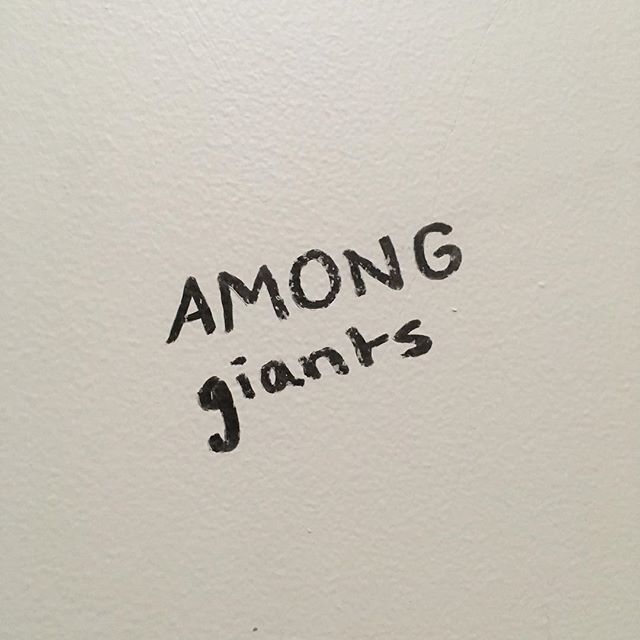 AMONG
giants